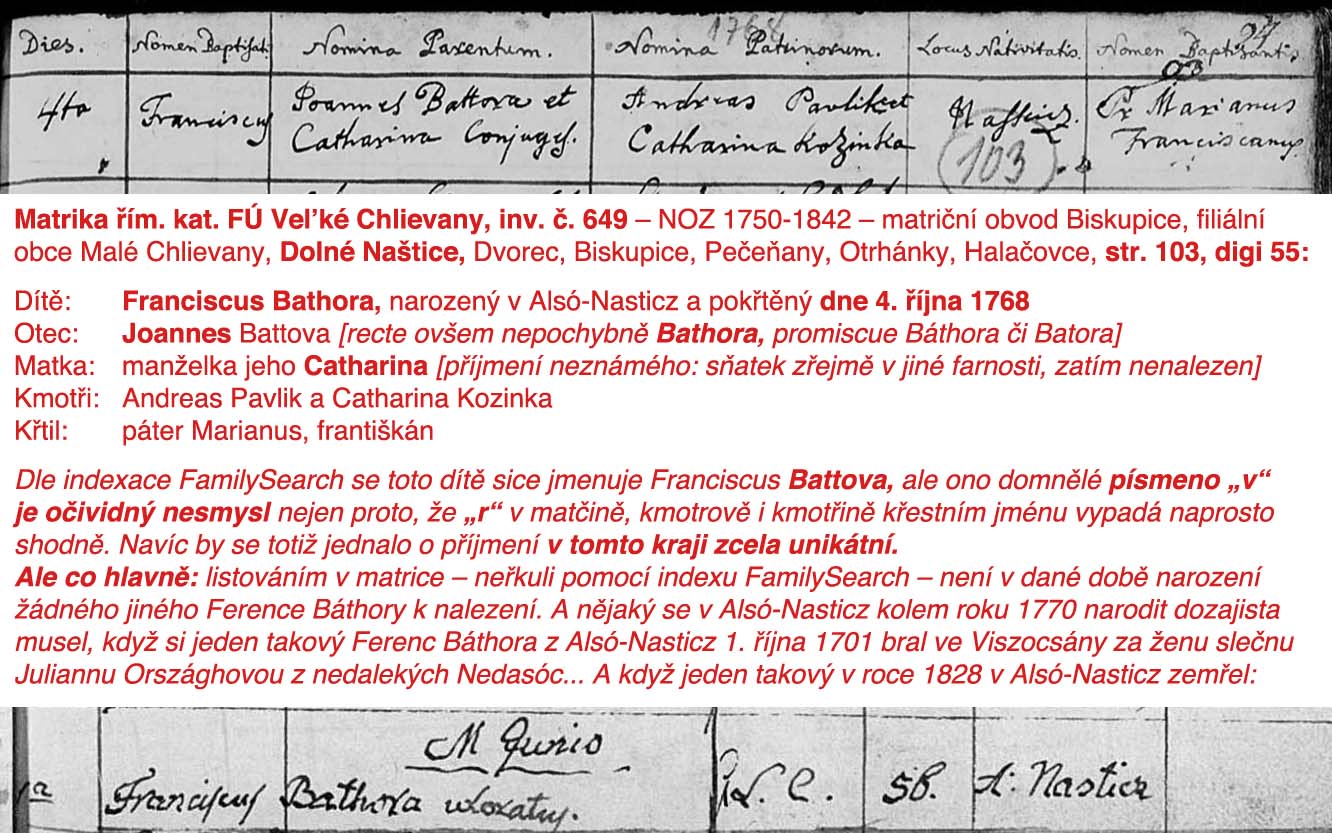 1768
94
Dies. Nomen Baptisati Nomina Parentum. Nomina Patrinorum. Locus Nativitatis. Nomen Baptizantis
4ta Franciscus Joannes Battora et Andreas Pavlik et Nasticz. Pr Marianus
Catharina Conjuges. Catharina Kozinka (103) Franciscanus
Matrika řím. kat. FÚ Vel’ké Chlievany, inv. č. 649 – NOZ 1750-1842 – matriční obvod Biskupice, filiální
obce Malé Chlievany, Dolné Naštice, Dvorec, Biskupice, Pečeňany, Otrhánky, Halačovce, str. 103, digi 55:
Dítě: Franciscus Bathora, narozený v Alsó-Nasticz a pokřtěný dne 4. října 1768
Otec: Joannes Battova [recte ovšem nepochybně Bathora, promiscue Báthora či Batora]
Matka: manželka jeho Catharina [příjmení neznámého: sňatek zřejmě v jiné farnosti, zatím nenalezen]
Kmotři: Andreas Pavlik a Catharina Kozinka
Křtil: páter Marianus, františkán
Dle indexace FamilySearch se toto dítě sice jmenuje Franciscus Battova, ale ono domnělé písmeno „v“
je očividný nesmysl nejen proto, že „r“ v matčině, kmotrově i kmotřině křestním jménu vypadá naprosto
shodně. Navíc by se totiž jednalo o příjmení v tomto kraji zcela unikátní.
Ale co hlavně: listováním v matrice – neřkuli pomocí indexu FamilySearch – není v dané době narození
žádného jiného Ference Báthory k nalezení. A nějaký se v Alsó-Nasticz kolem roku 1770 narodit dozajista
musel, když si jeden takový Ferenc Báthora z Alsó-Nasticz 1. října 1701 bral ve Viszocsány za ženu slečnu
Juliannu Országhovou z nedalekých Nedasóc... A když jeden takový v roce 1828 v Alsó-Nasticz zemřel:
M Junio
Franciscus Bathora uxoratus. R. C. 56. A: Nasticz